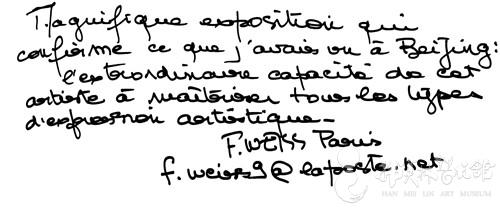 Magnifique exposition qui
confirme ce que j'avais vu à Beijing:
l'extraordinaire capacité de cet
artiste à maîtriser tous les types
d'expression artistique_
F. Weiss Paris
@laposte.net
韩美林艺术馆
HAN MEI LIN ART MUSEUM